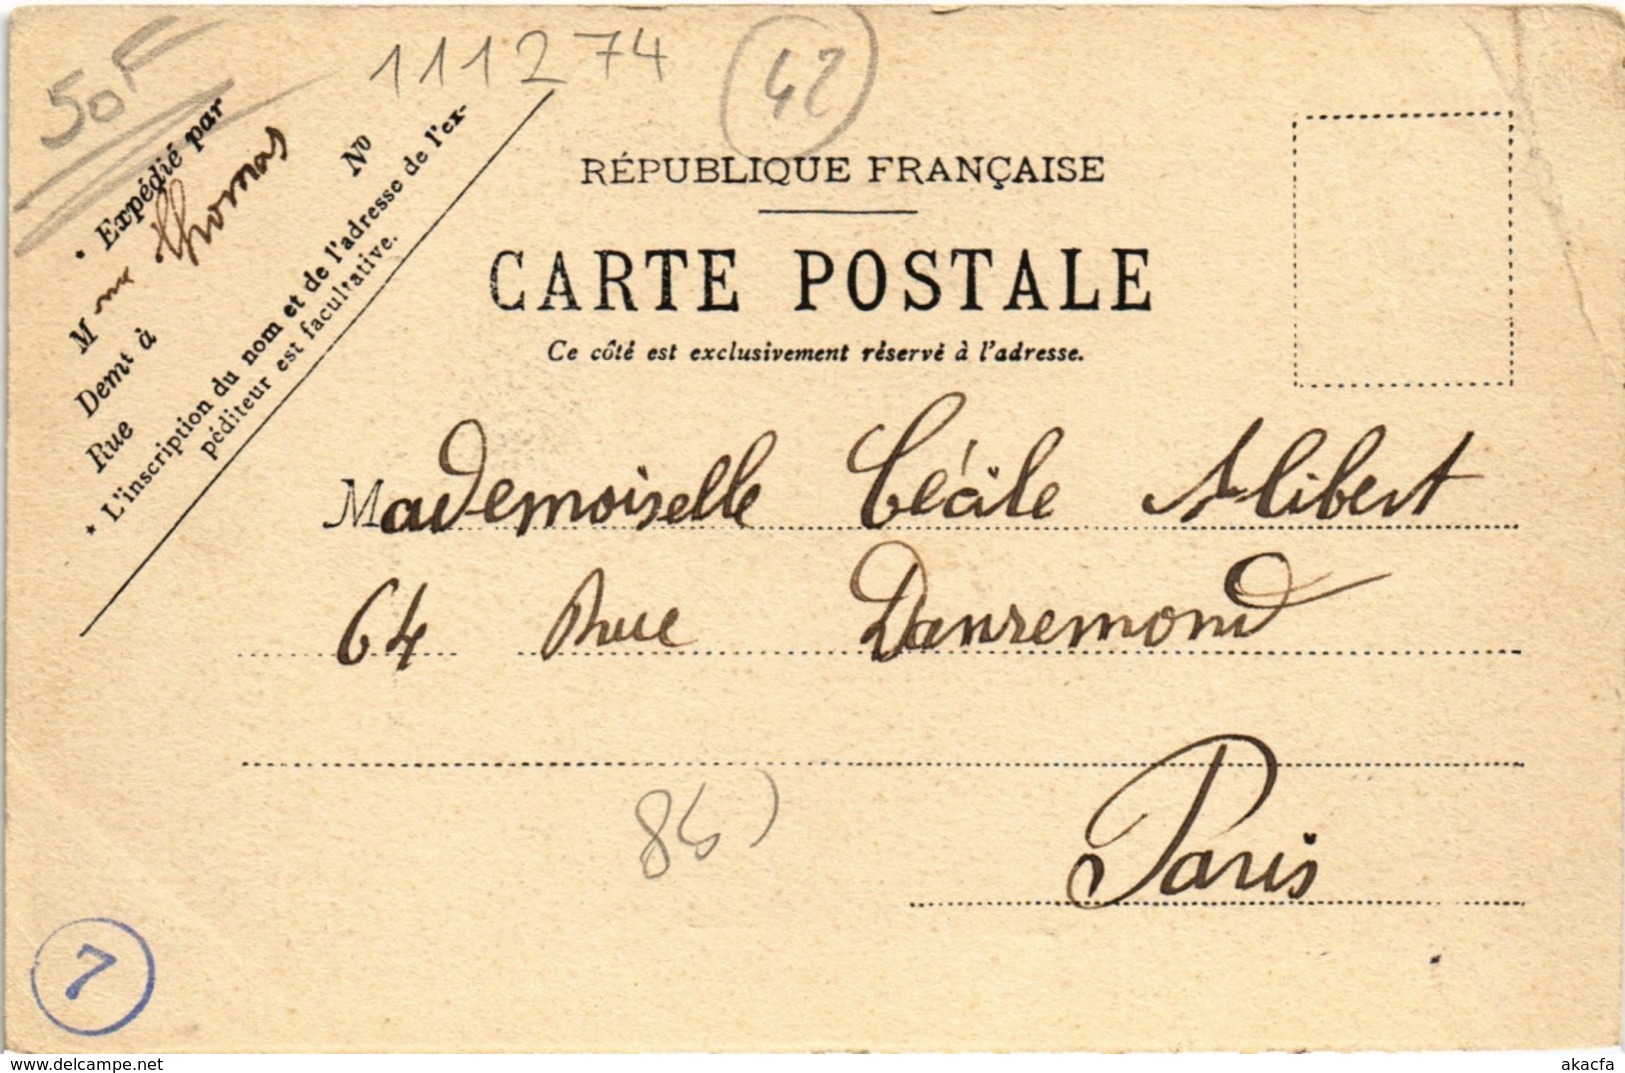 50F
111274
42
* Expédié par
Mme Thomas
Demt à
Rue
No
* L'inscription du nom et de l'adresse de l'ex-
péditeur est facultative.
RÉPUBLIQUE FRANÇAISE
CARTE POSTALE
Ce côté est exclusivement réservé à l'adresse.
Mademoiselle Cécile Alibert
64 Rue Danremond
Paris
7
delcampe.net
akacfa